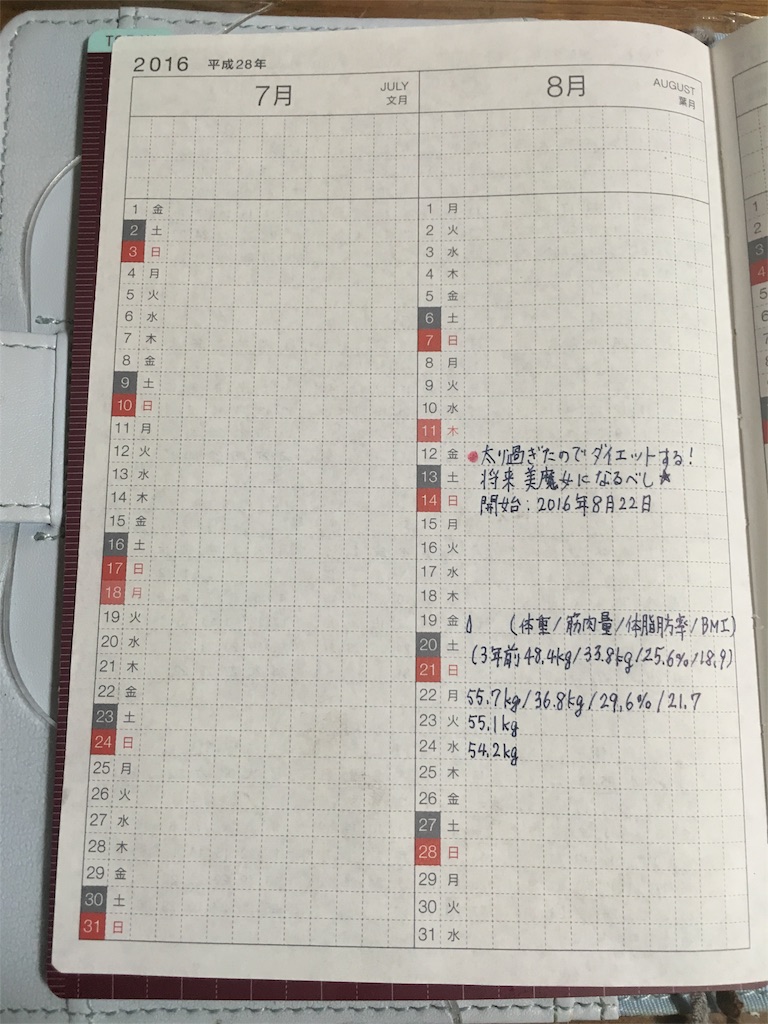 2016 平成28年
7月 JULY 文月
1 金
2 土
3 日
4 月
5 火
6 水
7 木
8 金
9 土
10 日
11 月
12 火
13 水
14 木
15 金
16 土
17 日
18 月
19 火
20 水
21 木
22 金
23 土
24 日
25 月
26 火
27 水
28 木
29 金
30 土
31 日
8月 AUGUST 葉月
1 月
2 火
3 水
4 木
5 金
6 土
7 日
8 月
9 火
10 水
11 木
12 金 太り過ぎたのでダイエットする!
13 土 将来美魔女になるべし★
14 日 開始:2016年8月22日
15 月
16 火
17 水
18 木
19 金 (体重/筋肉量/体脂肪率/BMI)
20 土 (3年前48.4kg/33.8kg/25.6%/18.9)
21 日
22 月 55.7kg/36.8kg/29.6%/21.7
23 火 55.1kg
24 水 54.2kg
25 木
26 金
27 土
28 日
29 月
30 火
31 水
1
2
3
4
5
6